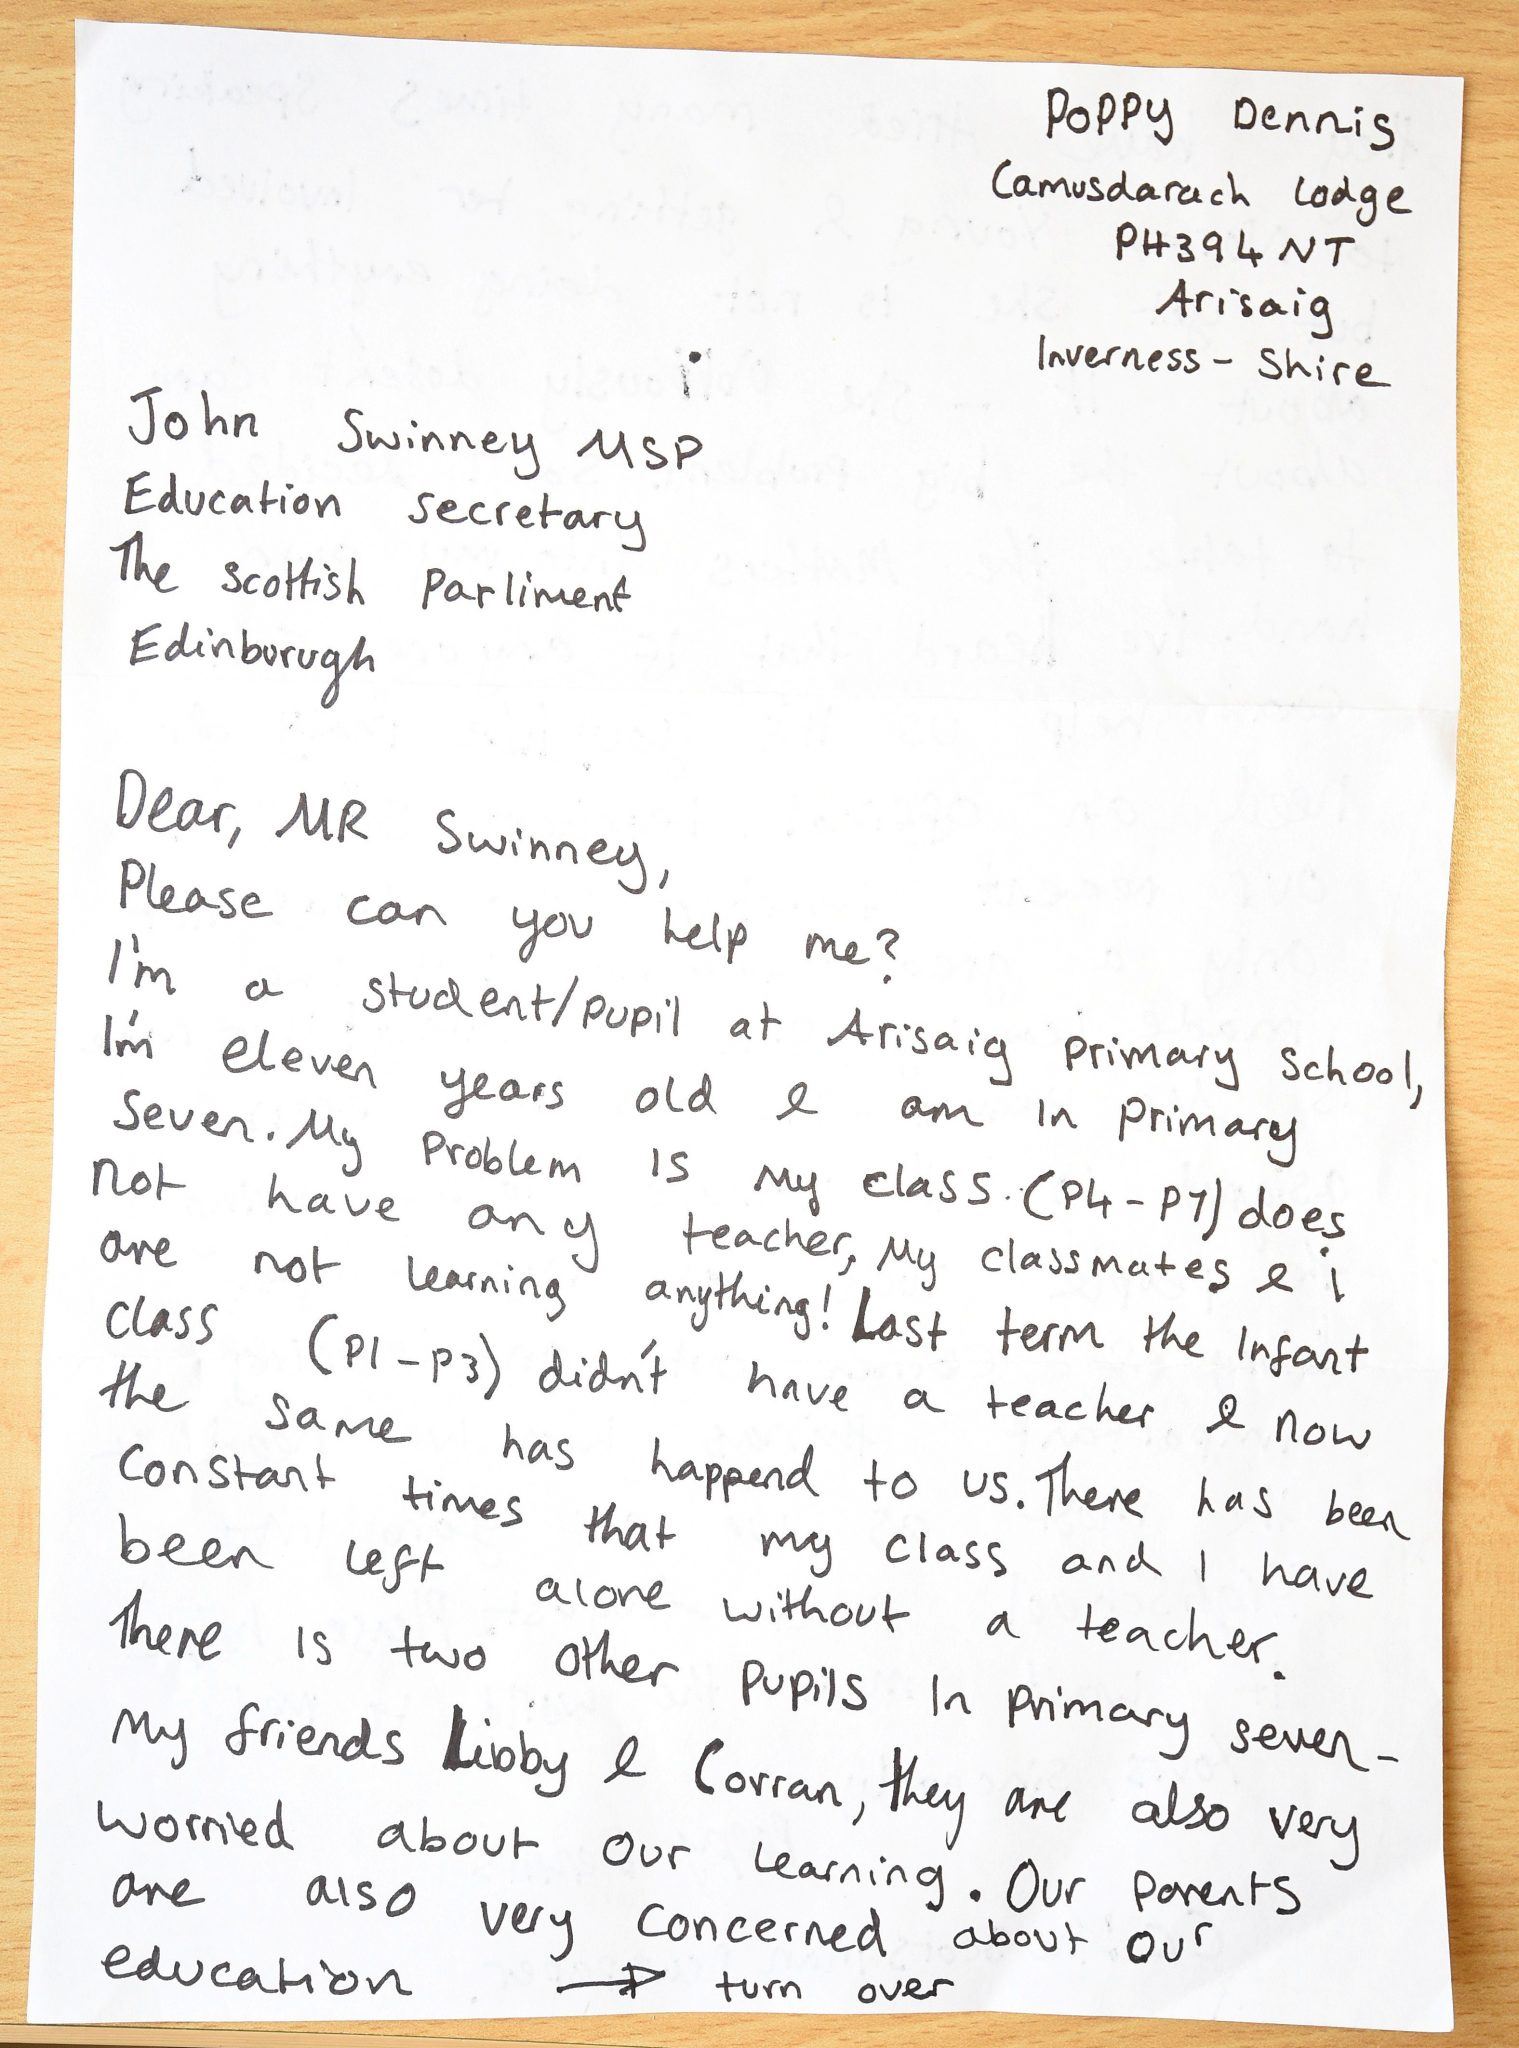 Poppy Dennis
Camusdarach Lodge
PH394NT
Arisaig
Inverness - Shire
John Swinney MSP
Education secretary
The scottish Parliment
Edinburugh
Dear, MR Swinney,
Please can you help me?
I'm a student/pupil at Arisaig primary school,
I'm eleven years old & am in primary
seven. My problem is my class. (P4-P7) does
not have any teacher, My classmates & i
are not learning anything! Last term the infant
class (P1-P3) didn't have a teacher & now
the same has happend to us. There has been
constant times that my class and I have
been left alone without a teacher.
There is two other pupils in primary seven-
My friends Libby & Corran, they are also very
worried about our learning. Our parents
are also very concerned about our
education → turn over